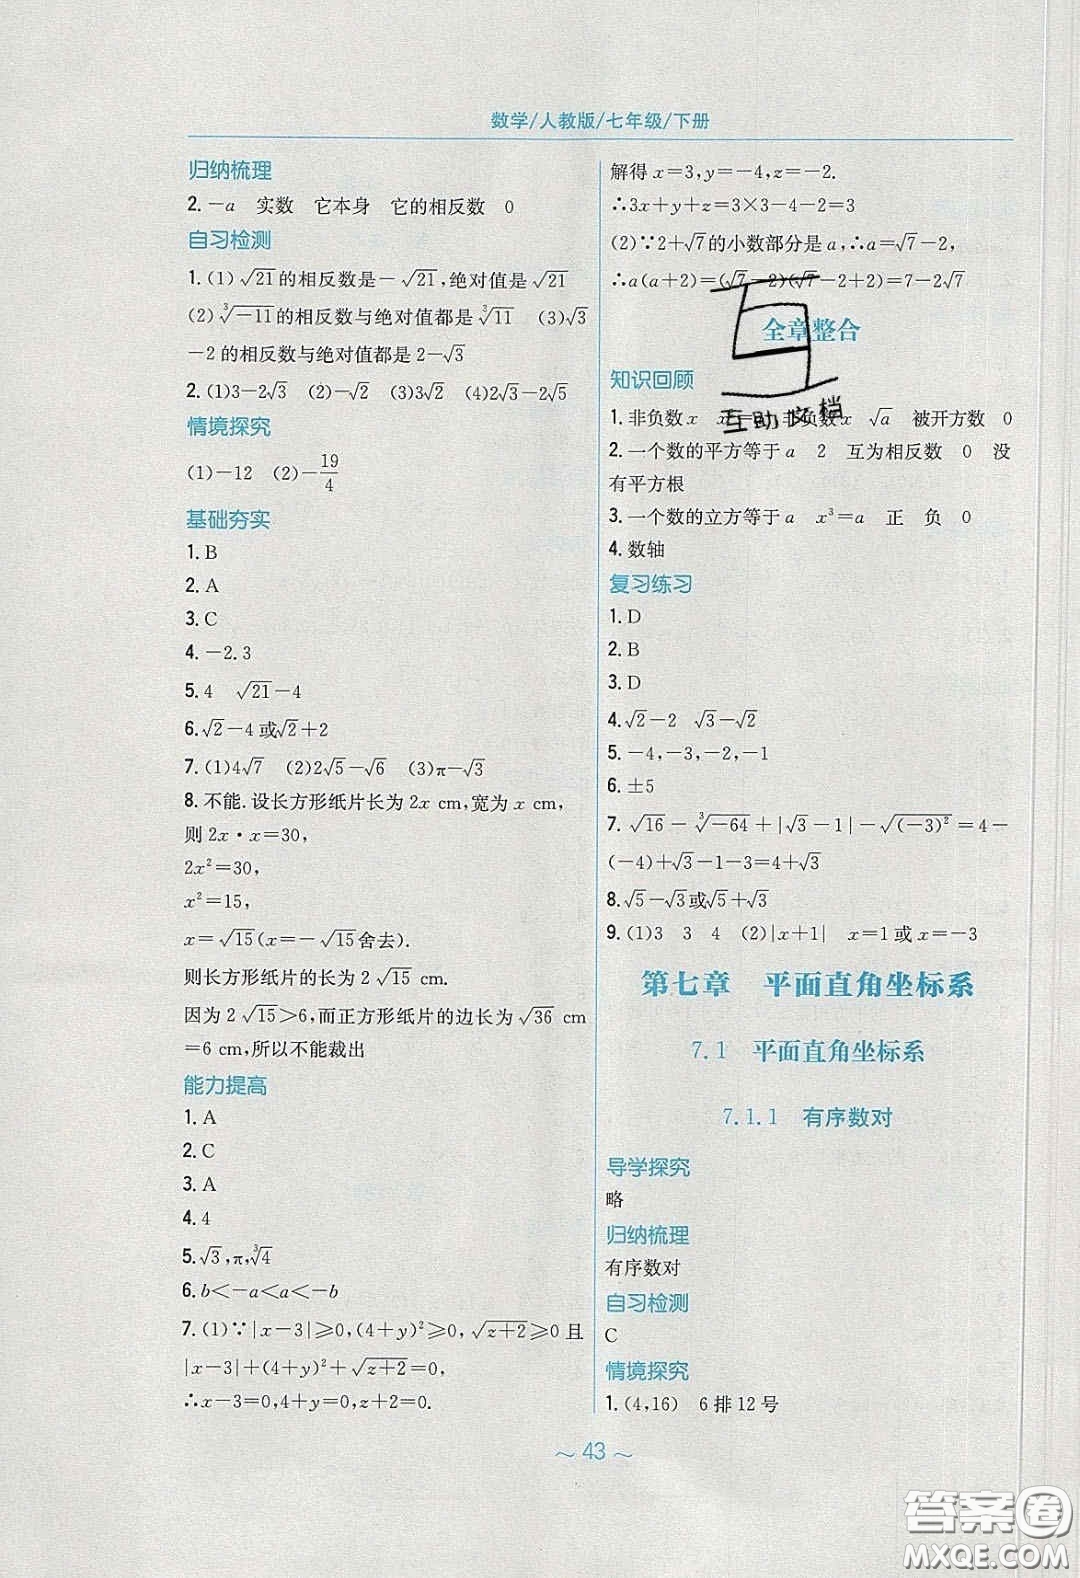 数学/人教版/七年级/下册
归纳梳理
2. －a 实数 它本身 它的相反数 0
自习检测
1. (1) √21的相反数是－√21,绝对值是√21
(2) ∛－11的相反数与绝对值都是∛11 (3)√3
－2的相反数与绝对值都是2－√3
2. (1)3－2√3 (2)－√2 (3)3√2 (4)2√3－2√5
情境探究
(1)－12 (2)－19/4
基础夯实
1. B
2. A
3. C
4. －2.3
5. 4 √21－4
6. √2－4或√2＋2
7. (1)4√7 (2)2√5－√6 (3)π－√3
8. 不能. 设长方形纸片长为2x cm,宽为x cm,
则2x·x＝30,
2x²＝30,
x²＝15,
x＝√15(x＝－√15舍去).
则长方形纸片的长为2√15 cm.
因为2√15＞6,而正方形纸片的边长为√36 cm
＝6 cm,所以不能裁出
能力提高
1. A
2. C
3. A
4. 4
5. √3,π,∛4
6. b＜－a＜a＜－b
7. (1)∵|x－3|≥0,(4＋y)²≥0,√z＋2≥0且
|x－3|＋(4＋y)²＋√z＋2＝0,
∴x－3＝0,4＋y＝0,z＋2＝0.
解得x＝3,y＝－4,z＝－2.
∴3x＋y＋z＝3×3－4－2＝3
(2)∵2＋√7的小数部分是a,∴a＝√7－2,
∴a(a＋2)＝(√7－2)(√7－2＋2)＝7－2√7
全章整合
知识回顾
1. 非负数x 非负数x √a 被开方数 0
2. 一个数的平方等于a 2 互为相反数 0 没
有平方根
3. 一个数的立方等于a x³＝a 正 负 0
4. 数轴
互助文档
复习练习
1. D
2. B
3. D
4. √2－2 √3－√2
5. －4,－3,－2,－1
6. ±5
7. √16－∛－64＋|√3－1|－√(－3)²＝4－
(－4)＋√3－1－3＝4＋√3
8. √5－√3或√5＋√3
9. (1)3 3 4 (2)|x＋1| x＝1或x＝－3
第七章 平面直角坐标系
7.1 平面直角坐标系
7.1.1 有序数对
导学探究
略
归纳梳理
有序数对
自习检测
C
情境探究
1. (4,16) 6排12号
～ 43 ～
答案圈
MXQE.COM